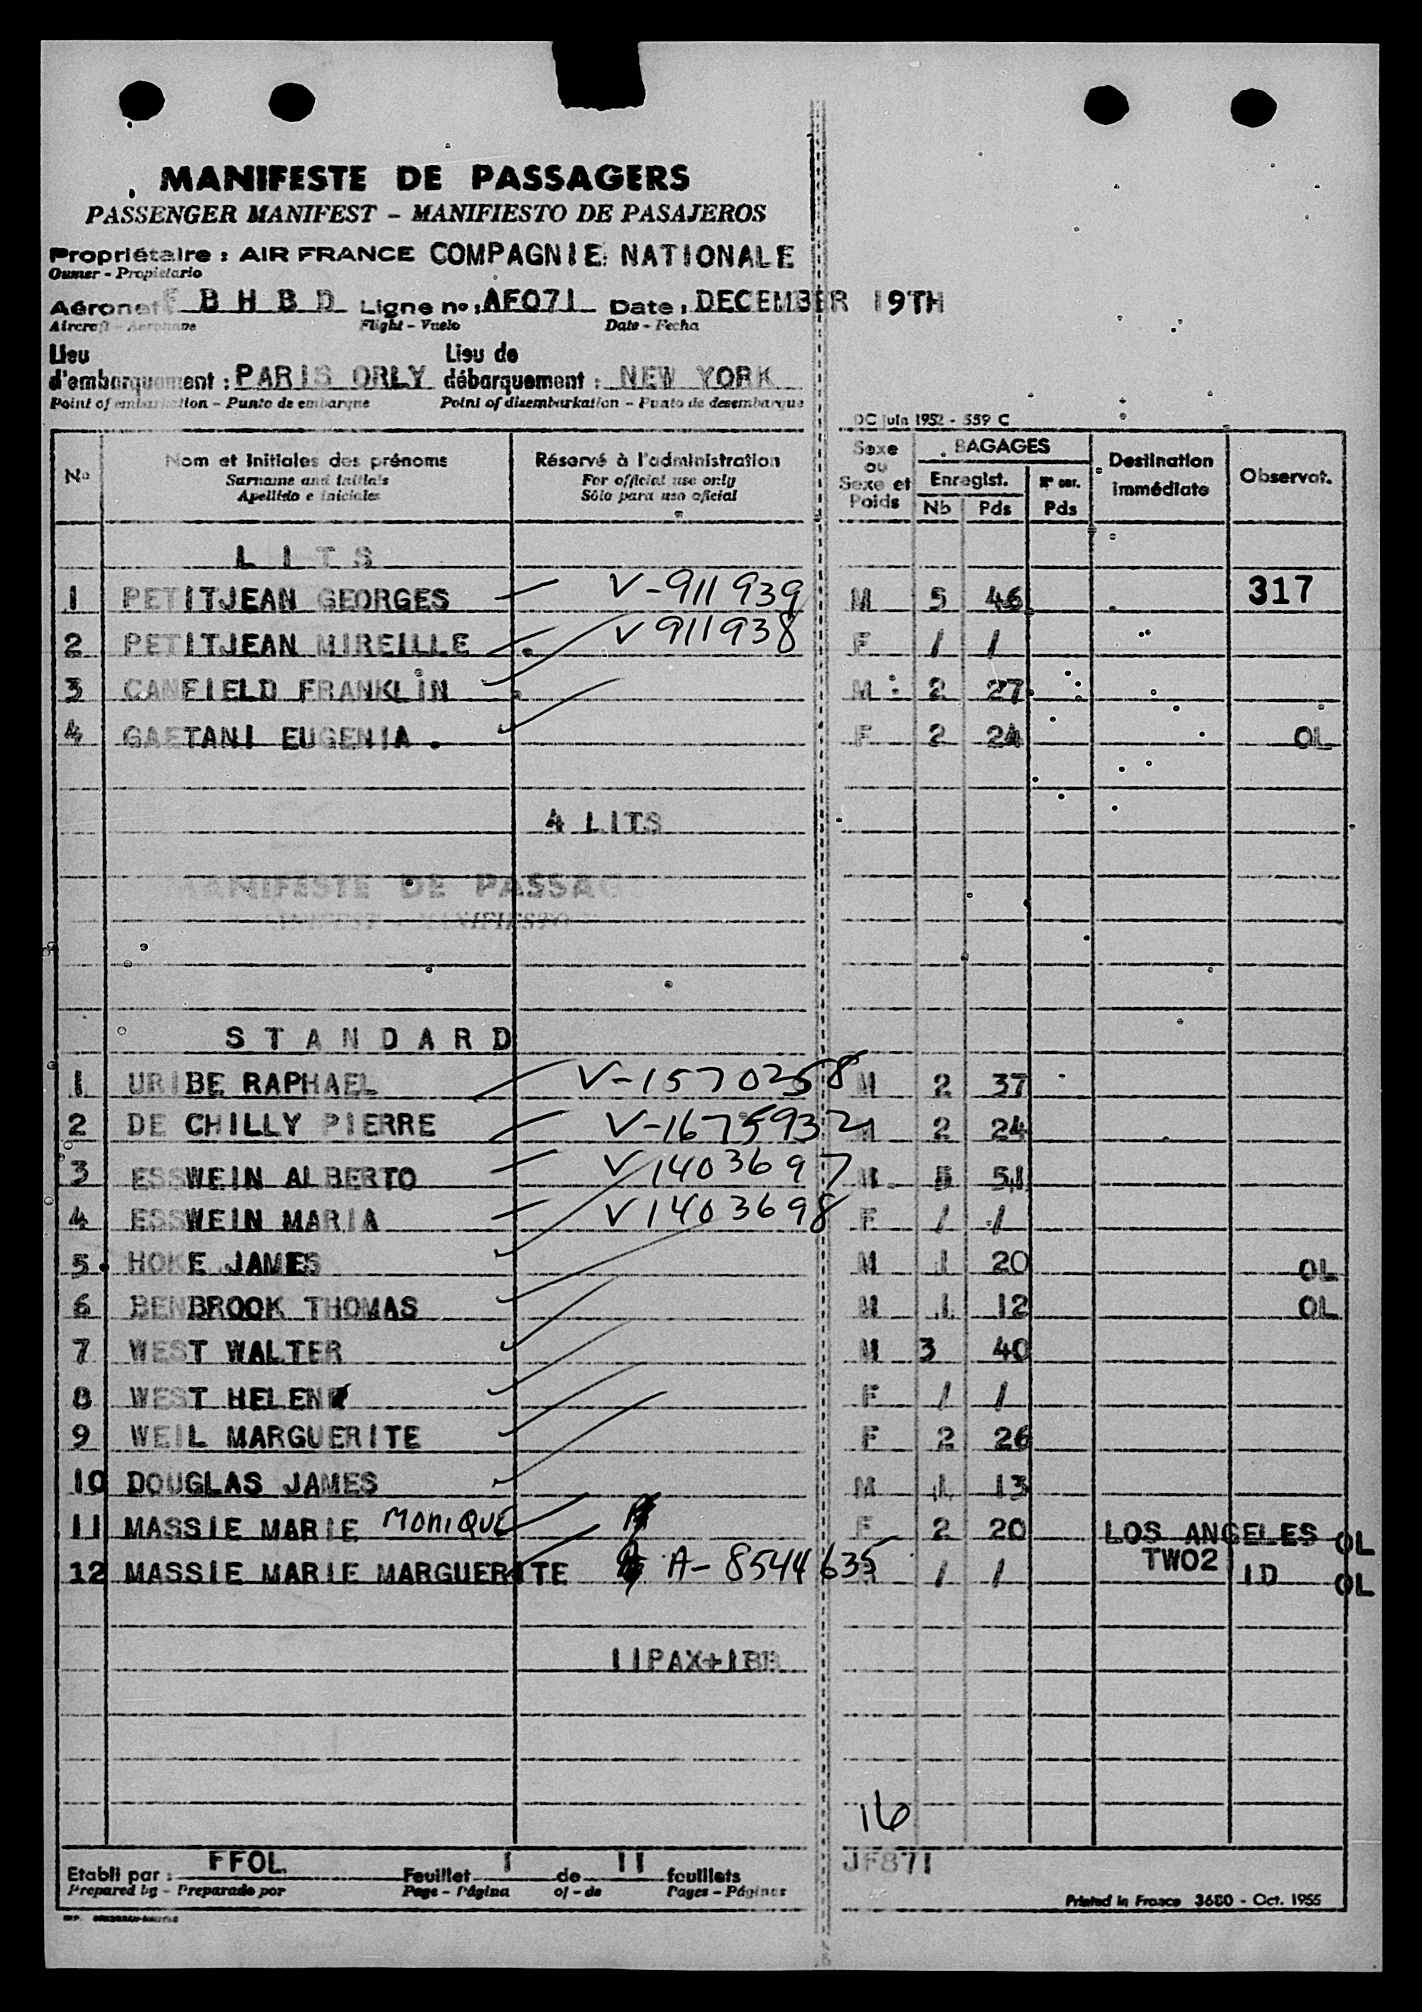 MANIFESTE DE PASSAGERS
PASSENGER MANIFEST – MANIFIESTO DE PASAJEROS
Propriétaire : AIR FRANCE COMPAGNIE NATIONALE
Owner - Propietario
Aéronef F B H B D Ligne no : AF071 Date : DECEMBER 19TH
Aircraft - Aeronave Flight - Vuelo Date - Fecha
Lieu d'embarquement : PARIS ORLY Lieu de débarquement : NEW YORK
Point of embarkation - Punto de embarque Point of disembarkation - Punto de desembarque
OC juin 1952 - 559 C
No Nom et Initiales des prénoms Réservé à l'administration Sexe ou Sexe et Poids BAGAGES Destination immédiate Observat.
Surname and initials For official use only Enregist. Nn enr.
Apellido e iniciales Sólo para uso oficial Nb Pds Pds
L I T S
1 PETITJEAN GEORGES V-911939 M 5 46 317
2 PETITJEAN MIREILLE V 911938 F / /
3 CANFIELD FRANKLIN M 2 27
4 GAETANI EUGENIA . F 2 24 OL
4 LITS
MANIFESTE DE PASSAG
MANIFIESTO
S T A N D A R D
1 URIBE RAPHAEL V-1570258 M 2 37
2 DE CHILLY PIERRE V-1675932 M 2 24
3 ESSWEIN ALBERTO V 1403697 M 5 51
4 ESSWEIN MARIA V 1403698 F / /
5 HOKE JAMES M 1 20 OL
6 BENBROOK THOMAS M 1 12 OL
7 WEST WALTER M 3 40
8 WEST HELEN F / /
9 WEIL MARGUERITE F 2 26
10 DOUGLAS JAMES M 1 13
11 MASSIE MARIE MONIQUE F 2 20 LOS ANGELES OL
12 MASSIE MARIE MARGUERITE A-8544635 / / TWO2 ID OL
11PAX+1BB
16
Etabli par : FFOL Feuillet 1 de 11 feuillets JF871
Prepared by - Preparado por Page - Página of - de Pages - Páginas
Printed in France 3680 - Oct. 1955